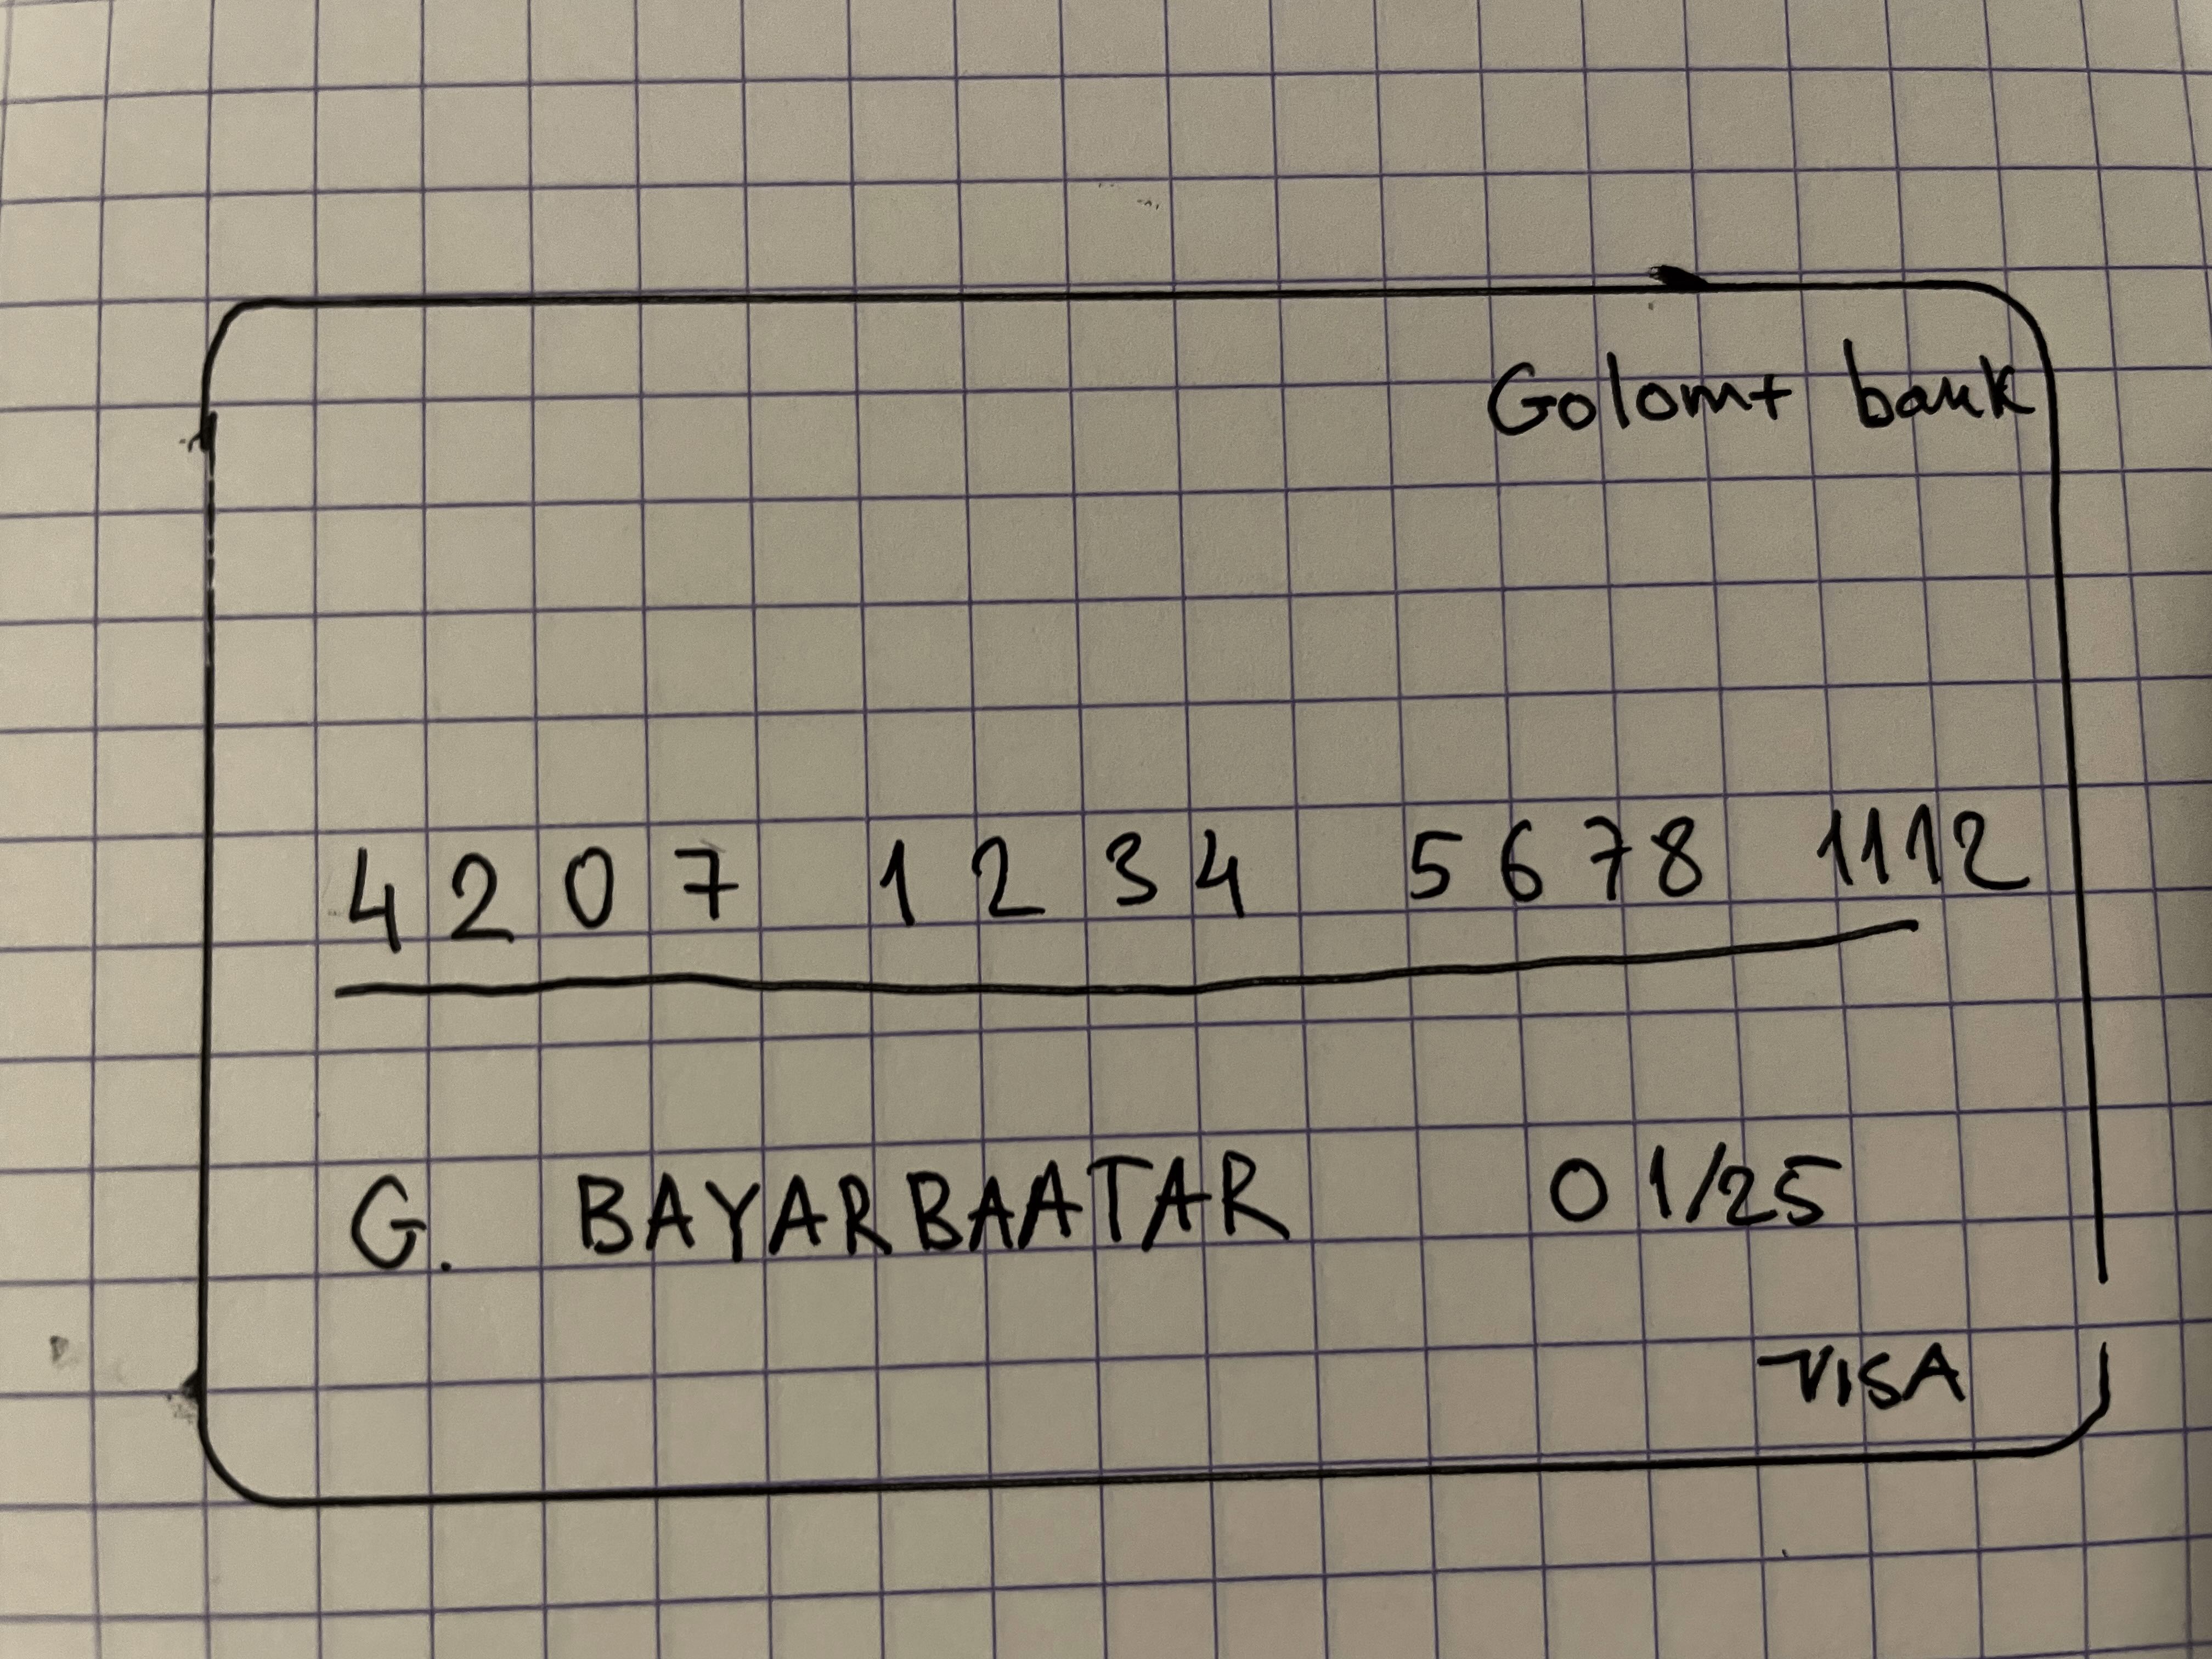 Golomt bank
4207 1234 5678 1112
G. BAYARBAATAR 01/25
VISA